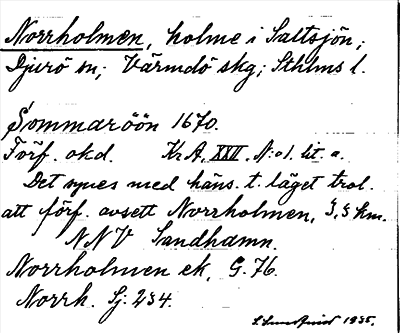 Norrholmen, holme i Saltsjön;
Djurö sn; Värmdö skg; Sthlms l.
Sommaröön 1670.
Förf. okd. Kr. A. XXII, N:o 1. lit. a.
Det synes med häns. t. läget trol.
att förf. avsett Norrholmen, 3,5 km.
NNV Sandhamn.
Norrholmen ek, G. 76.
Norrh. Sj: 234.
1935.